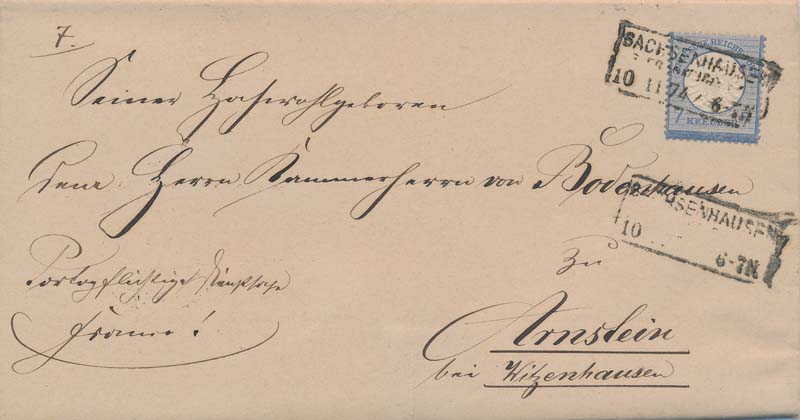 7.
Seiner Hochwohlgeboren
dem Herrn Kammerherrn von Bodenhausen
zu
Arnstein
bei Witzenhausen
Portopflichtige Dienstsache
franco!
SACHSENHAUSEN
10 11 74 6-7N
7 KREUZER
SACHSENHAUSEN
10 6-7N